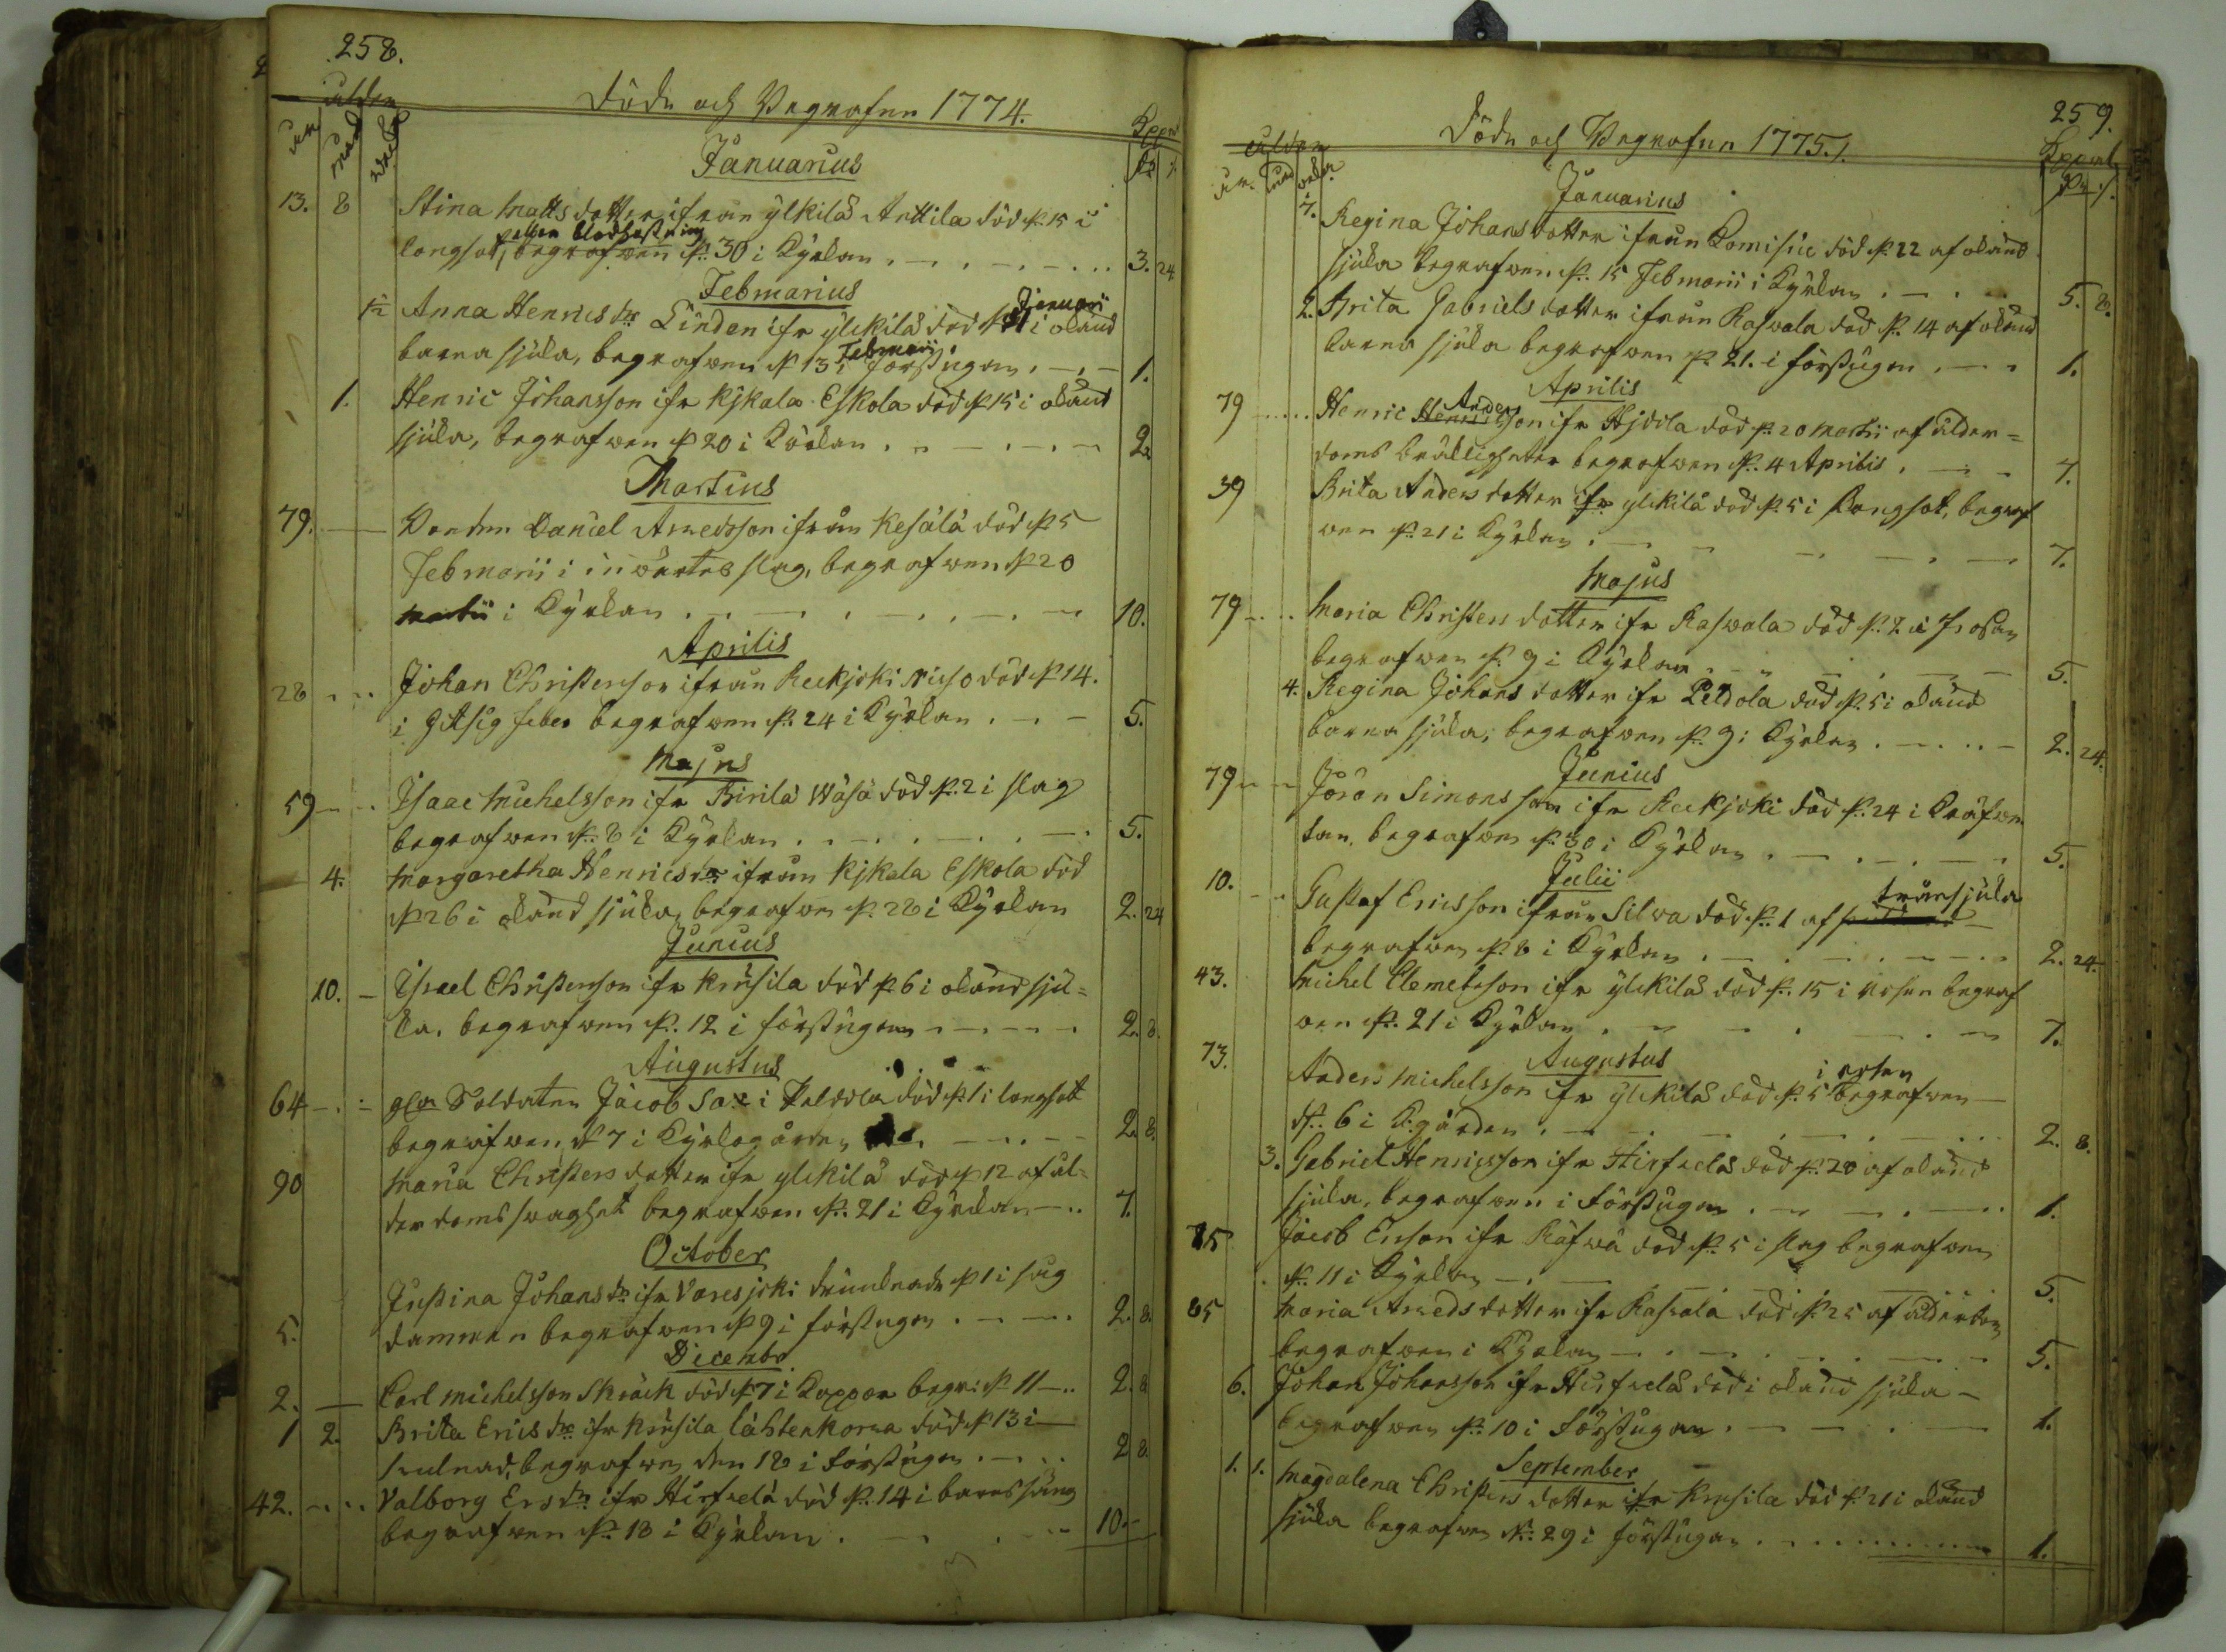 258.
ålder
Döde och Begrafne 1774.
Kopp.
år månad wecka
Januarius
13. 8 Stina Mattsdotter ifrån Ylikilä Anttila död d. 15 i
eller blodhostning
lungsot, begrafwen d. 30 i Kyrkan 3. 24
Februarius
Anna Henricsdr Linden ifr Ylikilä död d. Januarii i okänd
barnasjuka, begrafwen d. 13 Februarii i förstugan 1.
1. Henric Johansson ifr Kijkala Eskola död d. 15 i okänd
sjuka, begrafwen d. 20 i Kyrkan 2.
Martius
79. Bonden Daniel Arwedsson ifrån Kesälä död d. 5
Februarii i inwärtes slag, begrafwen d. 20
Martii i Kyrkan 10.
Aprilis
28 Johan Christersson ifrån Reekjoki död d. 14.
i hitsig feber begrafwen d. 24 i Kyrkan 5.
Majus
59 Isaac Michelsson ifr Pirilä Wäsä död d. 2 i slag
begrafwen d. 8 i Kyrkan 5.
4. Margaretha Henricsdr ifrån Kijkala Eskola död
d. 26 i okänd sjuka, begrafwen d. 28 i Kyrkan 2. 24
Junius
10. Israel Christersson ifr Krusila död d. 6 i okänd sju=
ka, begrafwen d. 12 i förstugan 2. 8.
Augustus
64 Soldaten Jacob Sax i Peldola död d. 1 i lungsot
begrafwen d. 7 i Kyrkogården 2. 8.
90 Maria Christersdotter ifr Ylikilä död d. 12 af ål=
derdoms swaghet begrafwen d. 21 i Kyrkan 7.
October
5. Justina Johansdr ifr Varesjoki drunknade d. 1 i såg
dammen begrafwen d. 9 i förstugan 2. 8.
December
2. Carl Michelsson Skräck död d. 7 i Koppor begr: d. 11 2. 8
1 2. Brita Ericsdr ifr Krusila Lähtenkorwa död d. 13 i
swulnad, begrafwen den 18 i förstugan 2 8.
42. Valborg Ersdr ifr Hirfselä död d. 14 i barnssäng
begrafwen d. 18 i Kyrkan 10.
259.
ålder
Döde och Begrafne 1775.
Kopp.
år. månad wecka
Januarius
7. Regina Johansdotter ifrån Romisui död d. 22 af okänd
sjuka begrafwen d. 15 Februarii i Kyrkan 5. 8.
2. Brita Gabrielsdotter ifrån Raswala död d. 14 af okänd
barna sjuka begrafwen d. 21. i förstugan 1.
Aprilis
Anders
79 Henric Henricsson ifr Hjdola död d. 20 Martii af ålder=
doms bräckligheter begrafwen d. 4 Aprilis 7.
39 Brita Andersdotter ifr Ylikilä död d. 5 i Lungsot, begraf
wen d. 21 i Kyrkan 7.
Majus
79 Maria Christersdotter ifr Raswala död d. 2 i frosan
begrafwen d. 9 i Kyrkan 5.
4. Regina Johansdotter ifr Peldola död d. 5 i okänd
barna sjuka, begrafwen d. 9 i Kyrkan 2. 24.
Junius
79 Jöran Simonsson ifr Reekjoki död d. 24 i Kräfwe
tan, begrafwen d. 30 i Kyrkan 5.
Julii
10. Gustaf Ericsson ifrån Silwa död d. 1 af tränsjuka
begrafwen d. 8 i Kyrkan 2. 24.
43. Michel Clemetsson ifr Ylikilä död d. 15 i rosen begraf
wen d. 21 i Kyrkan 7.
Augustus
73. Anders Michelsson ifr Ylikilä död d. 5 i rosen begrafwen
d. 6 i K:gården 2. 8.
3. Gabriel Henricsson ifr Hirfselä död d. 20 af okänd
sjuka, begrafwen i förstugan 1.
75 Jacob Ersson ifr Räfwä död d. 5 i slag begrafwen
d. 11 i Kyrkan 5.
85 Maria Arwedsdotter ifr Raswala död d. 25 af ålderdom
begrafwen i Kyrkan 5.
6. Johan Johansson ifr Hirfselä död i okänd sjuka
begrafwen d. 10 i förstugan 1.
September
1. 1. Magdalena Christersdotter ifr Krusila död d. 21 i okänd
sjuka begrafwen d. 29 i förstugan 1.